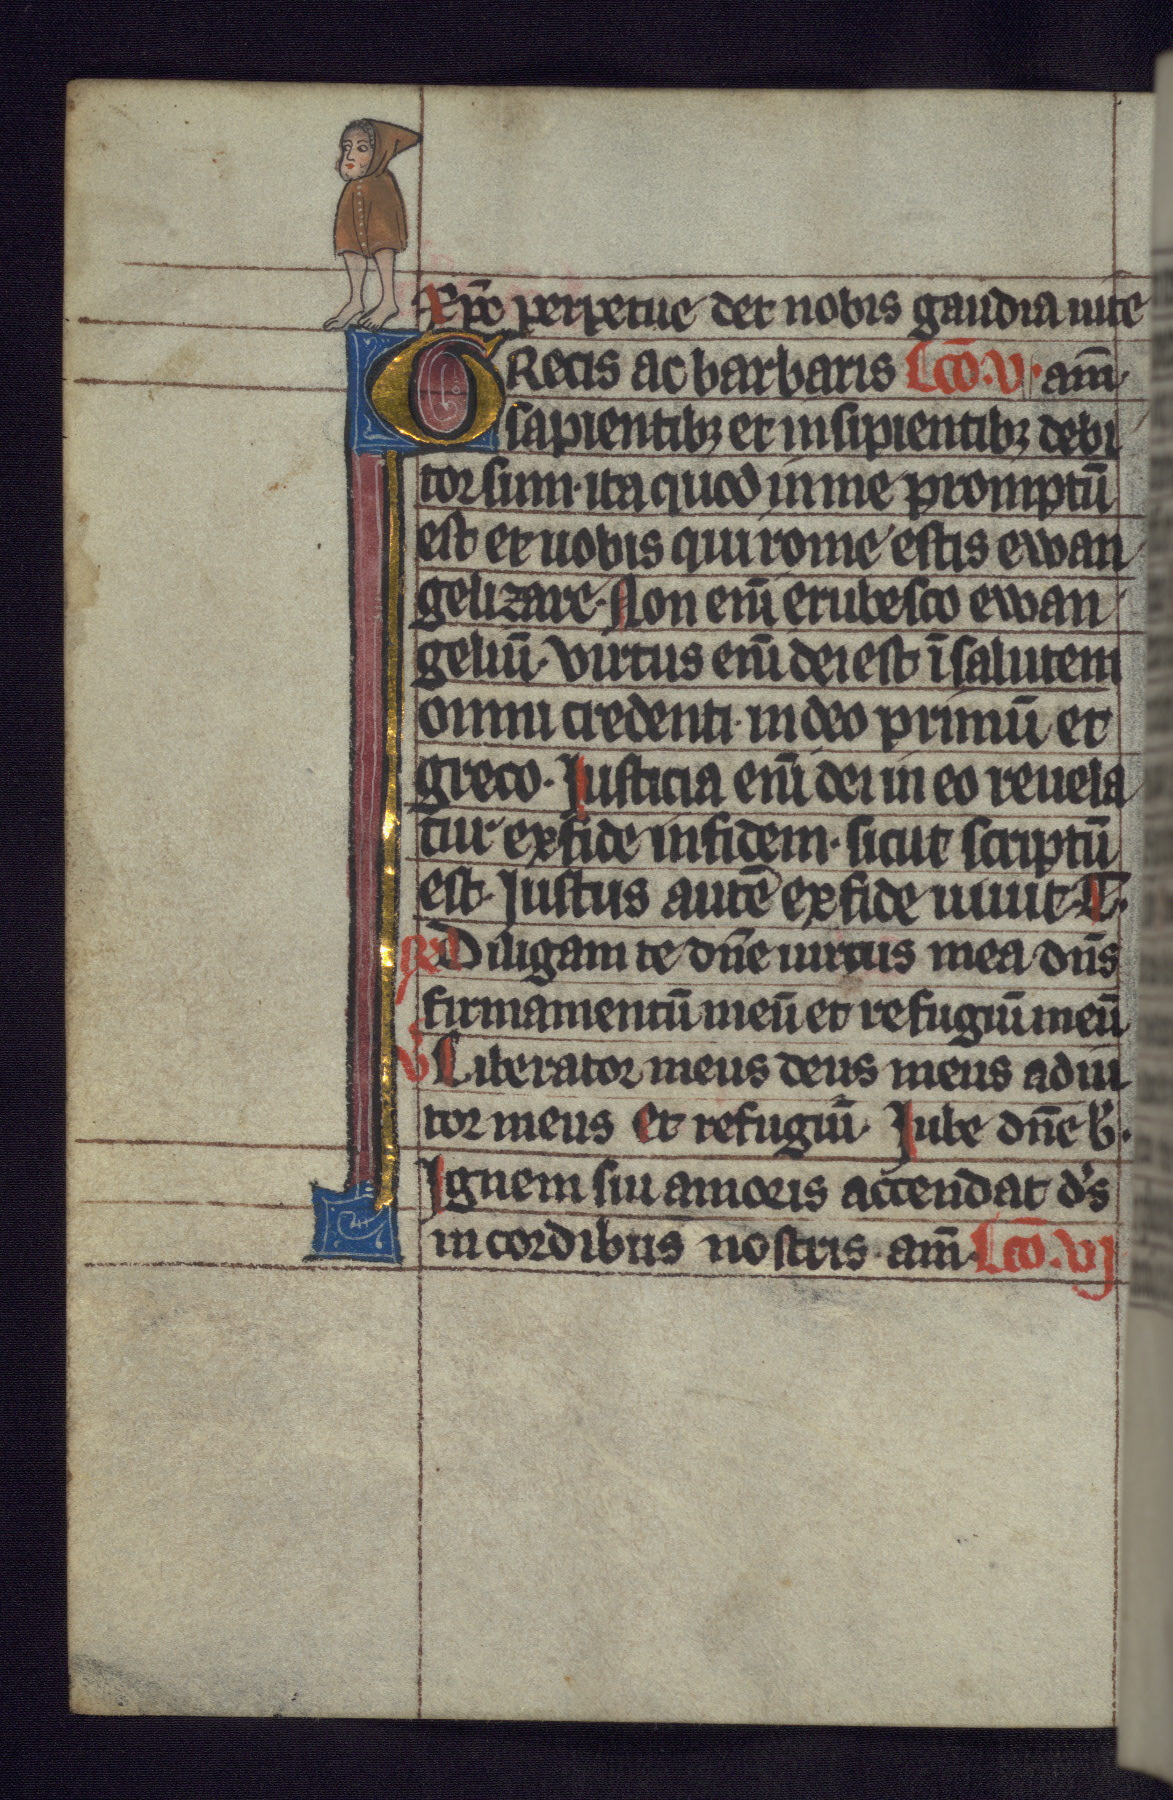 Xp̄c perpetue det nobis gaudia uite
GRecis ac barbaris Lc̄o.v. am̄.
sapientibꝫ et insipientibꝫ debi
tor sum. ita quod in me promptū
est et uobis qui rome estis ewan
gelizare. Non eni̅ erubesco ewan
geliū. virtus eni̅ dei est ī salutem
omni credenti. iudeo primū et
greco. Iusticia eni̅ dei in eo reuela
tur ex fide in fidem. sicut scriptū
est. Justus autē ex fide uiuit. T.
Diligam te dn̄e uirtus mea dn̄s
firmamentū meū et refugiū meū
v̄ Liberator meus deus meus adiu
tor meus Et refugiū. Iube dn̄e b̄.
Ignem sui amoris accendat d̄s
in cordibus nostris. am̄. Lc̄o. vj